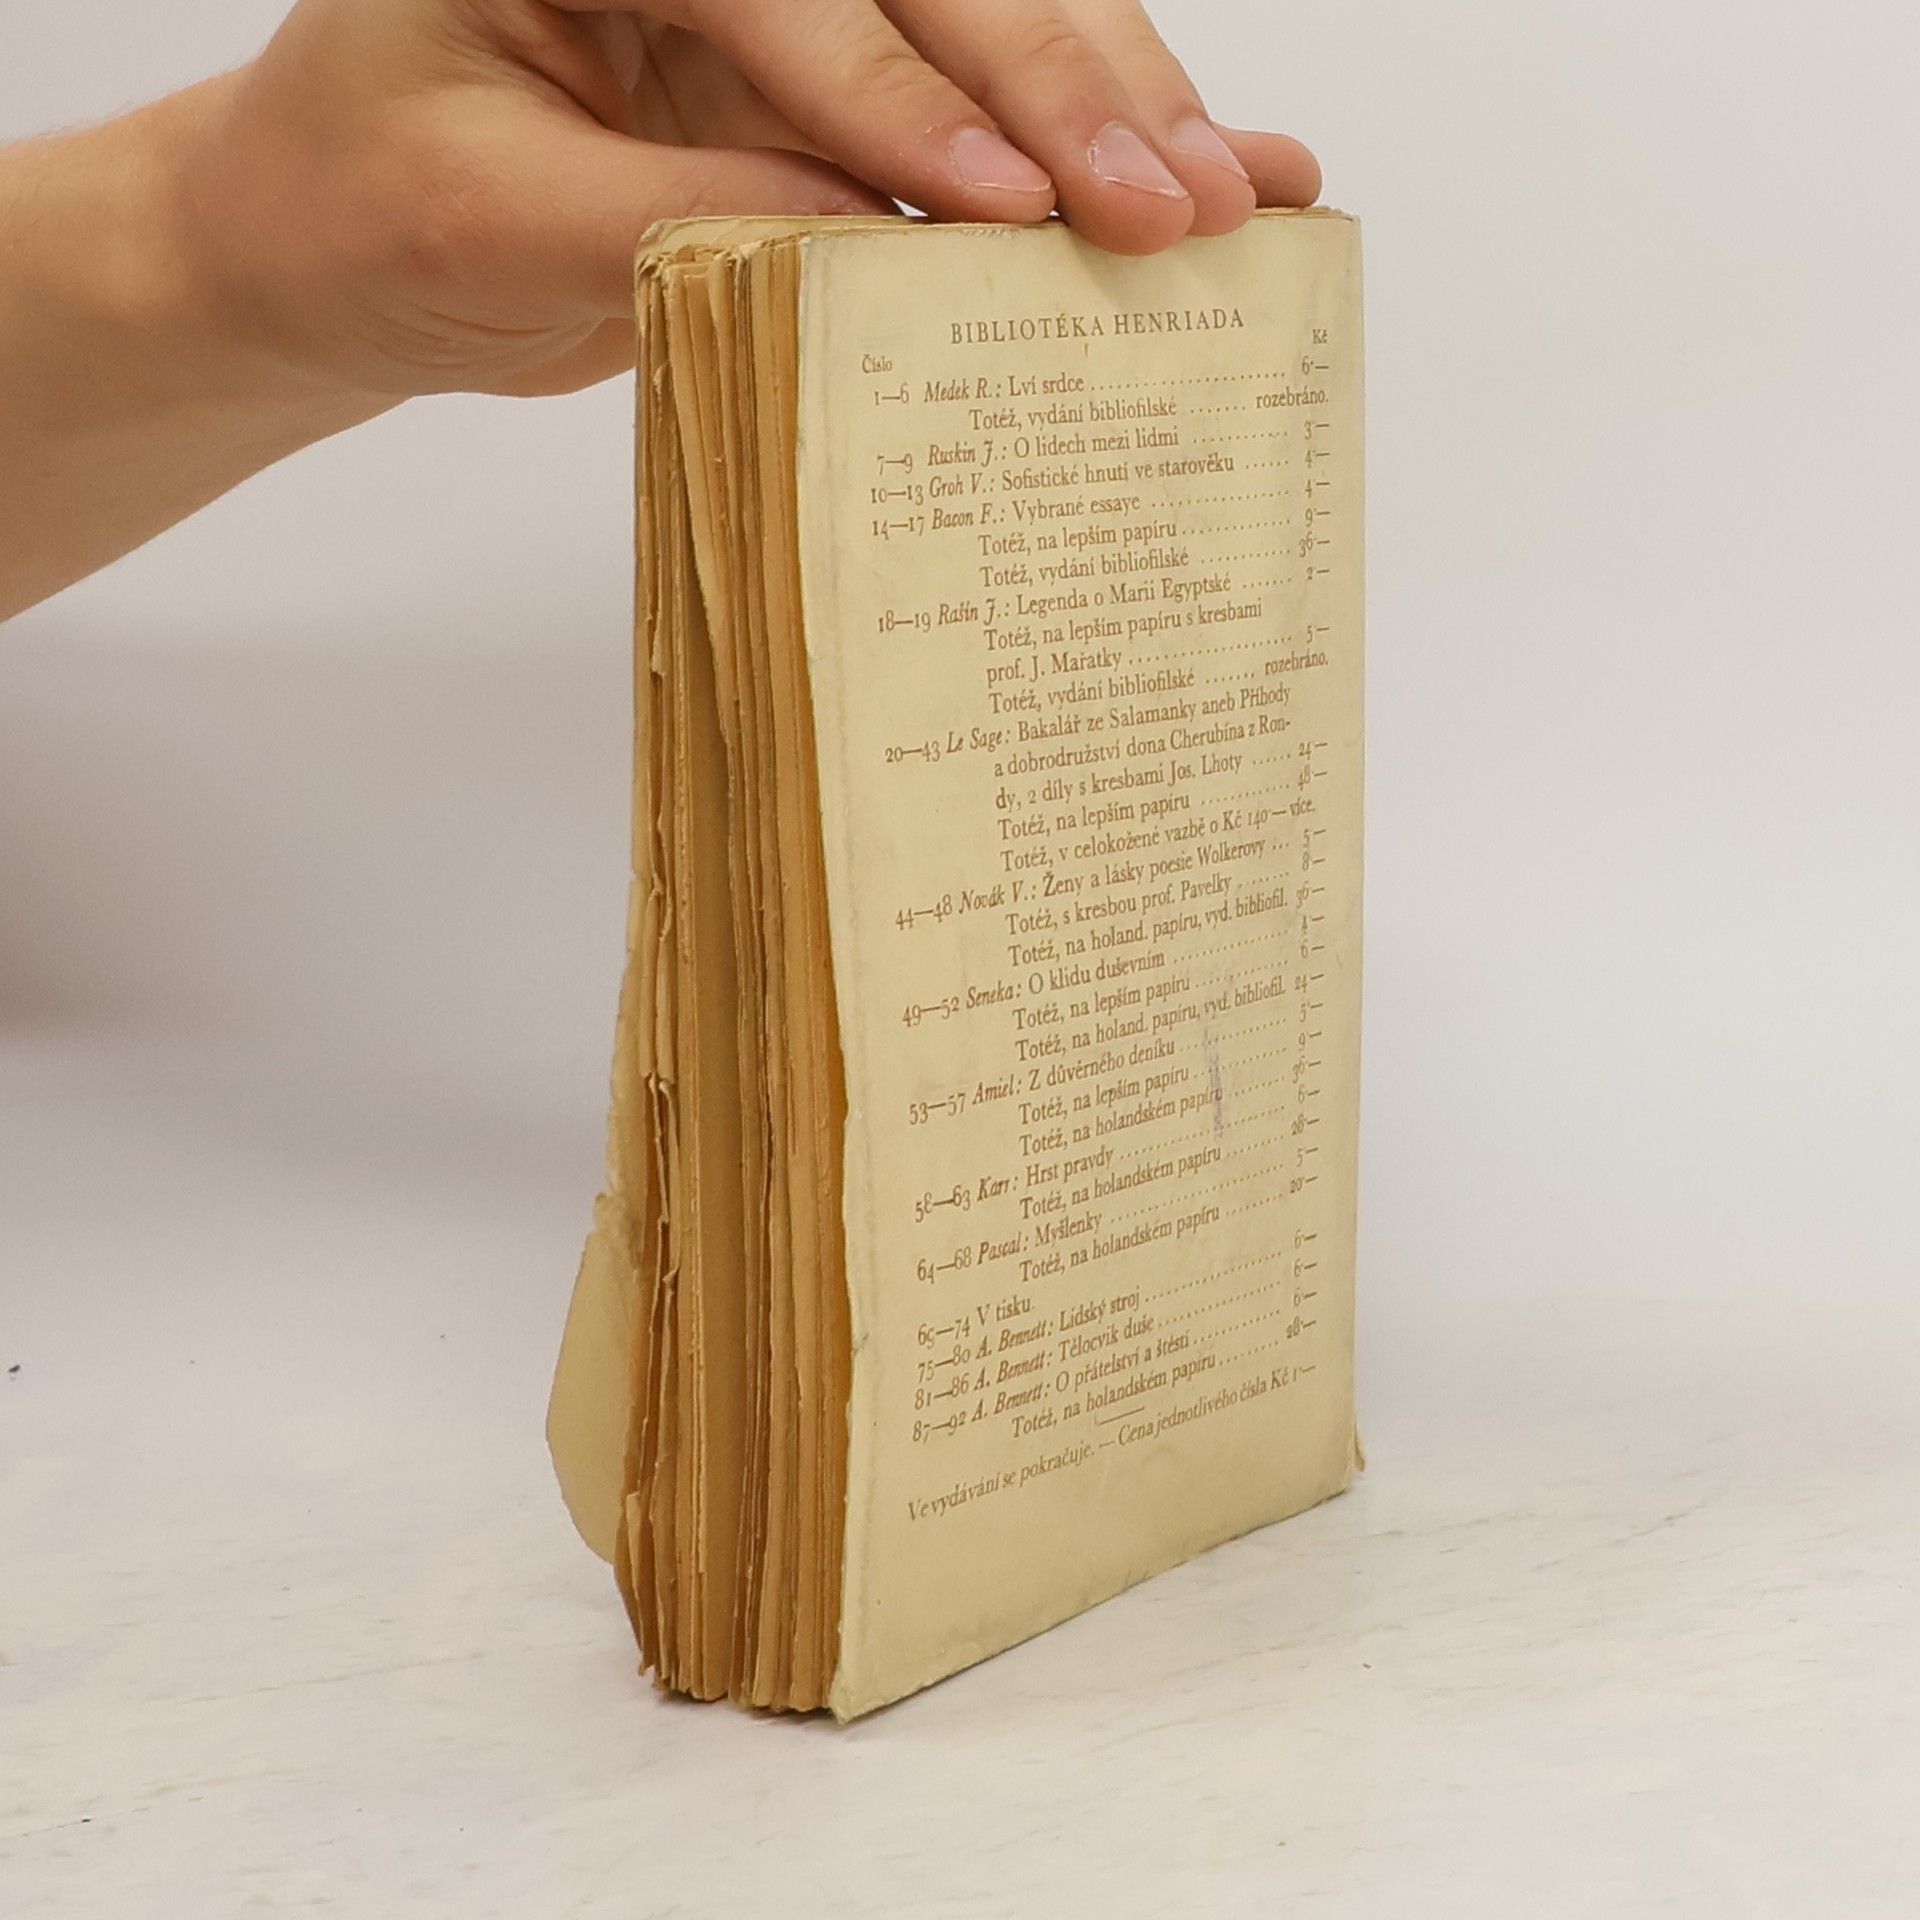 BIBLIOTÉKA HENRIADA
Číslo Kč
1—6 Medek R.: Lví srdce ........................ 6·—
Totéž, vydání bibliofilské ....... rozebráno.
7—9 Ruskin J.: O lidech mezi lidmi ............ 3·—
10—13 Groh V.: Sofistické hnutí ve starověku ...... 4·—
14—17 Bacon F.: Vybrané essaye .................. 4·—
Totéž, na lepším papíru .............. 9·—
Totéž, vydání bibliofilské ............ 36·—
18—19 Rašín J.: Legenda o Marii Egyptské ....... 2·—
Totéž, na lepším papíru s kresbami
prof. J. Mařatky ..................... 5·—
Totéž, vydání bibliofilské ....... rozebráno.
20—43 Le Sage: Bakalář ze Salamanky aneb Příhody
a dobrodružství dona Cherubína z Ron-
dy, 2 díly s kresbami Jos. Lhoty ...... 24·—
Totéž, na lepším papíru ............. 48·—
Totéž, v celokožené vazbě o Kč 140·— více.
44—48 Novák V.: Ženy a lásky poesie Wolkerovy ... 5·—
Totéž, s kresbou prof. Pavelky ........ 8·—
Totéž, na holand. papíru, vyd. bibliofil. 36·—
49—52 Seneka: O klidu duševním ............... 4·—
Totéž, na lepším papíru ............. 6·—
Totéž, na holand. papíru, vyd. bibliofil. 24·—
53—57 Amiel: Z důvěrného deníku .............. 5·—
Totéž, na lepším papíru .............. 9·—
Totéž, na holandském papíru .......... 36·—
58—63 Karr: Hrst pravdy ..................... 6·—
Totéž, na holandském papíru .......... 28·—
64—68 Pascal: Myšlenky ...................... 5·—
Totéž, na holandském papíru ......... 20·—
69—74 V tisku.
75—80 A. Bennett: Lidský stroj .................. 6·—
81—86 A. Bennett: Tělocvik duše ................ 6·—
87—92 A. Bennett: O přátelství a štěstí ............ 6·—
Totéž, na holandském papíru ......... 28·—
Ve vydávání se pokračuje. — Cena jednotlivého čísla Kč 1·—